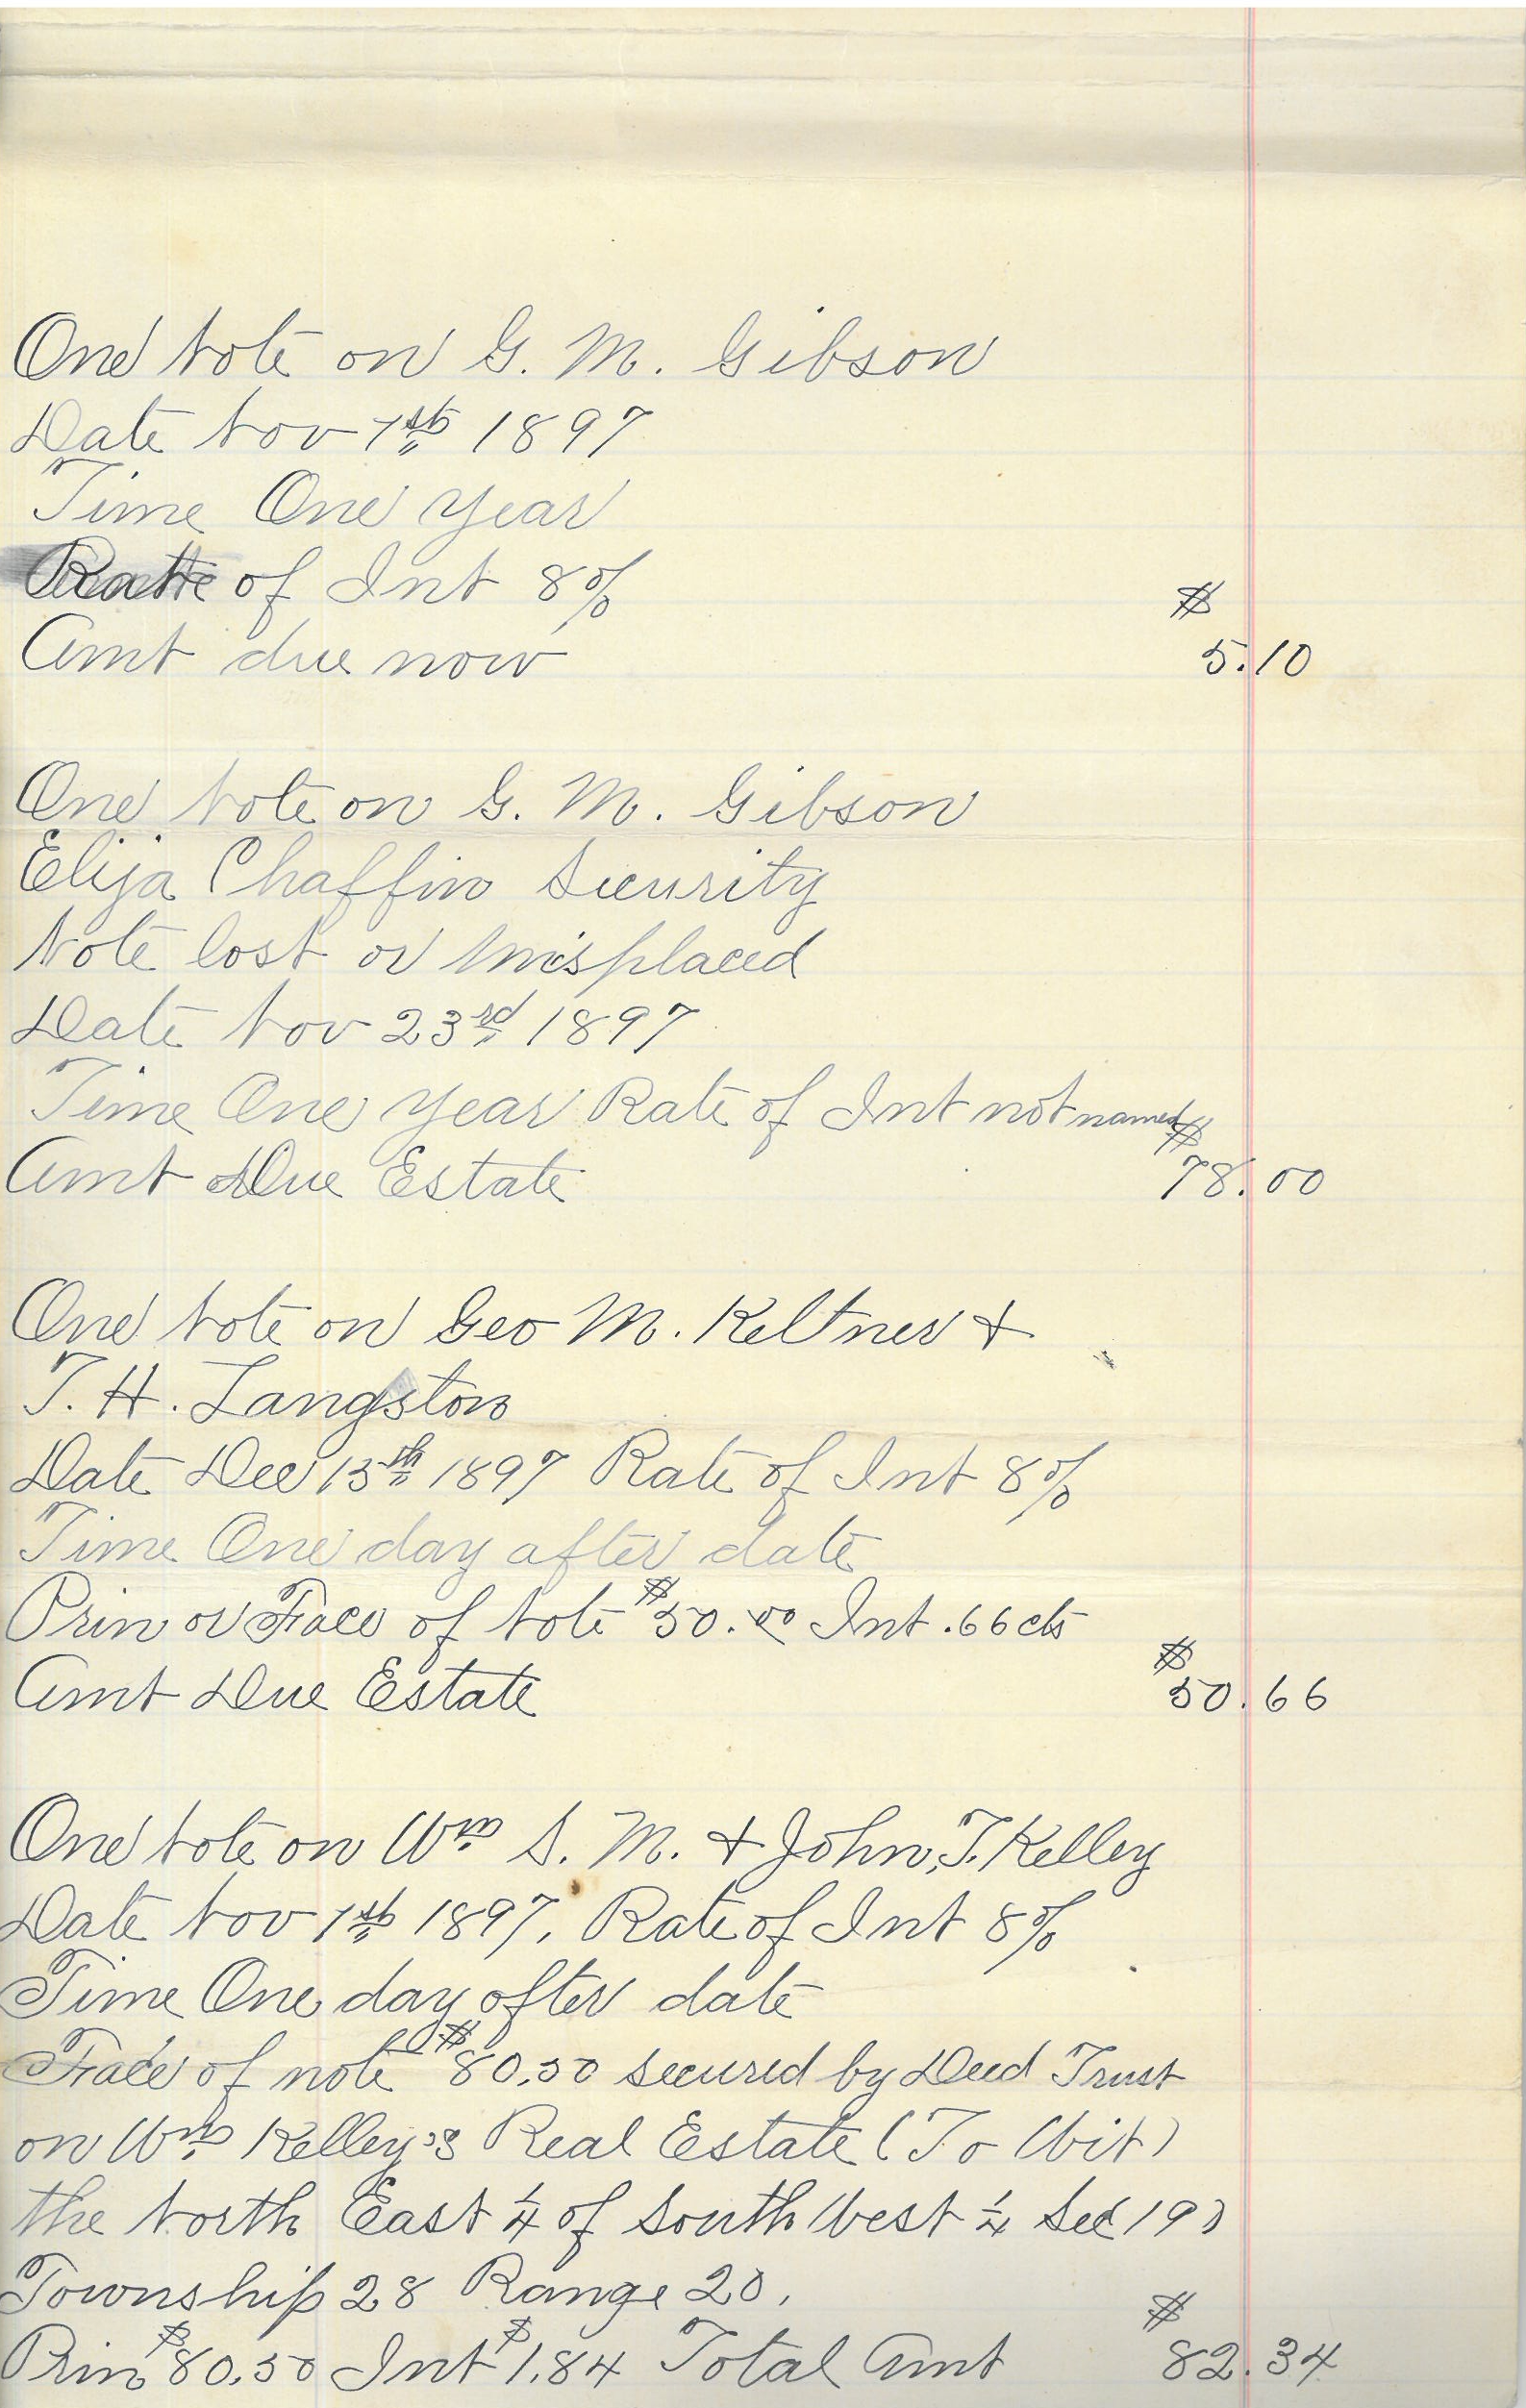 One Note on G. M. Gibson
Date Nov 1st 1897
Time One Year
Rate of Int 8%
$
Amt due now 5.10
One Note on G. M. Gibson
Elija Chaffin Security
Note lost or misplaced
Date Nov 23rd 1897
Time One Year Rate of Int not named
$
Amt Due Estate 78.00
One Note on Geo M. Keltner &
T. H. Langston
Date Dec 13th 1897 Rate of Int 8%
Time One day after date
Prin or Face of Note $50.00 Int .66 cts
$
Amt Due Estate 50.66
One Note on Wm S. M. & John, T. Kelley
Date Nov 1st 1897, Rate of Int 8%
Time One day after date
Face of note $80.50 secured by Deed Trust
on Wm Kelley's Real Estate (To Wit)
the North East 1/4 of South West 1/4 Sec (19)
Township 28 Range 20.
$
Prin $80.50 Int $1.84 Total Amt 82.34